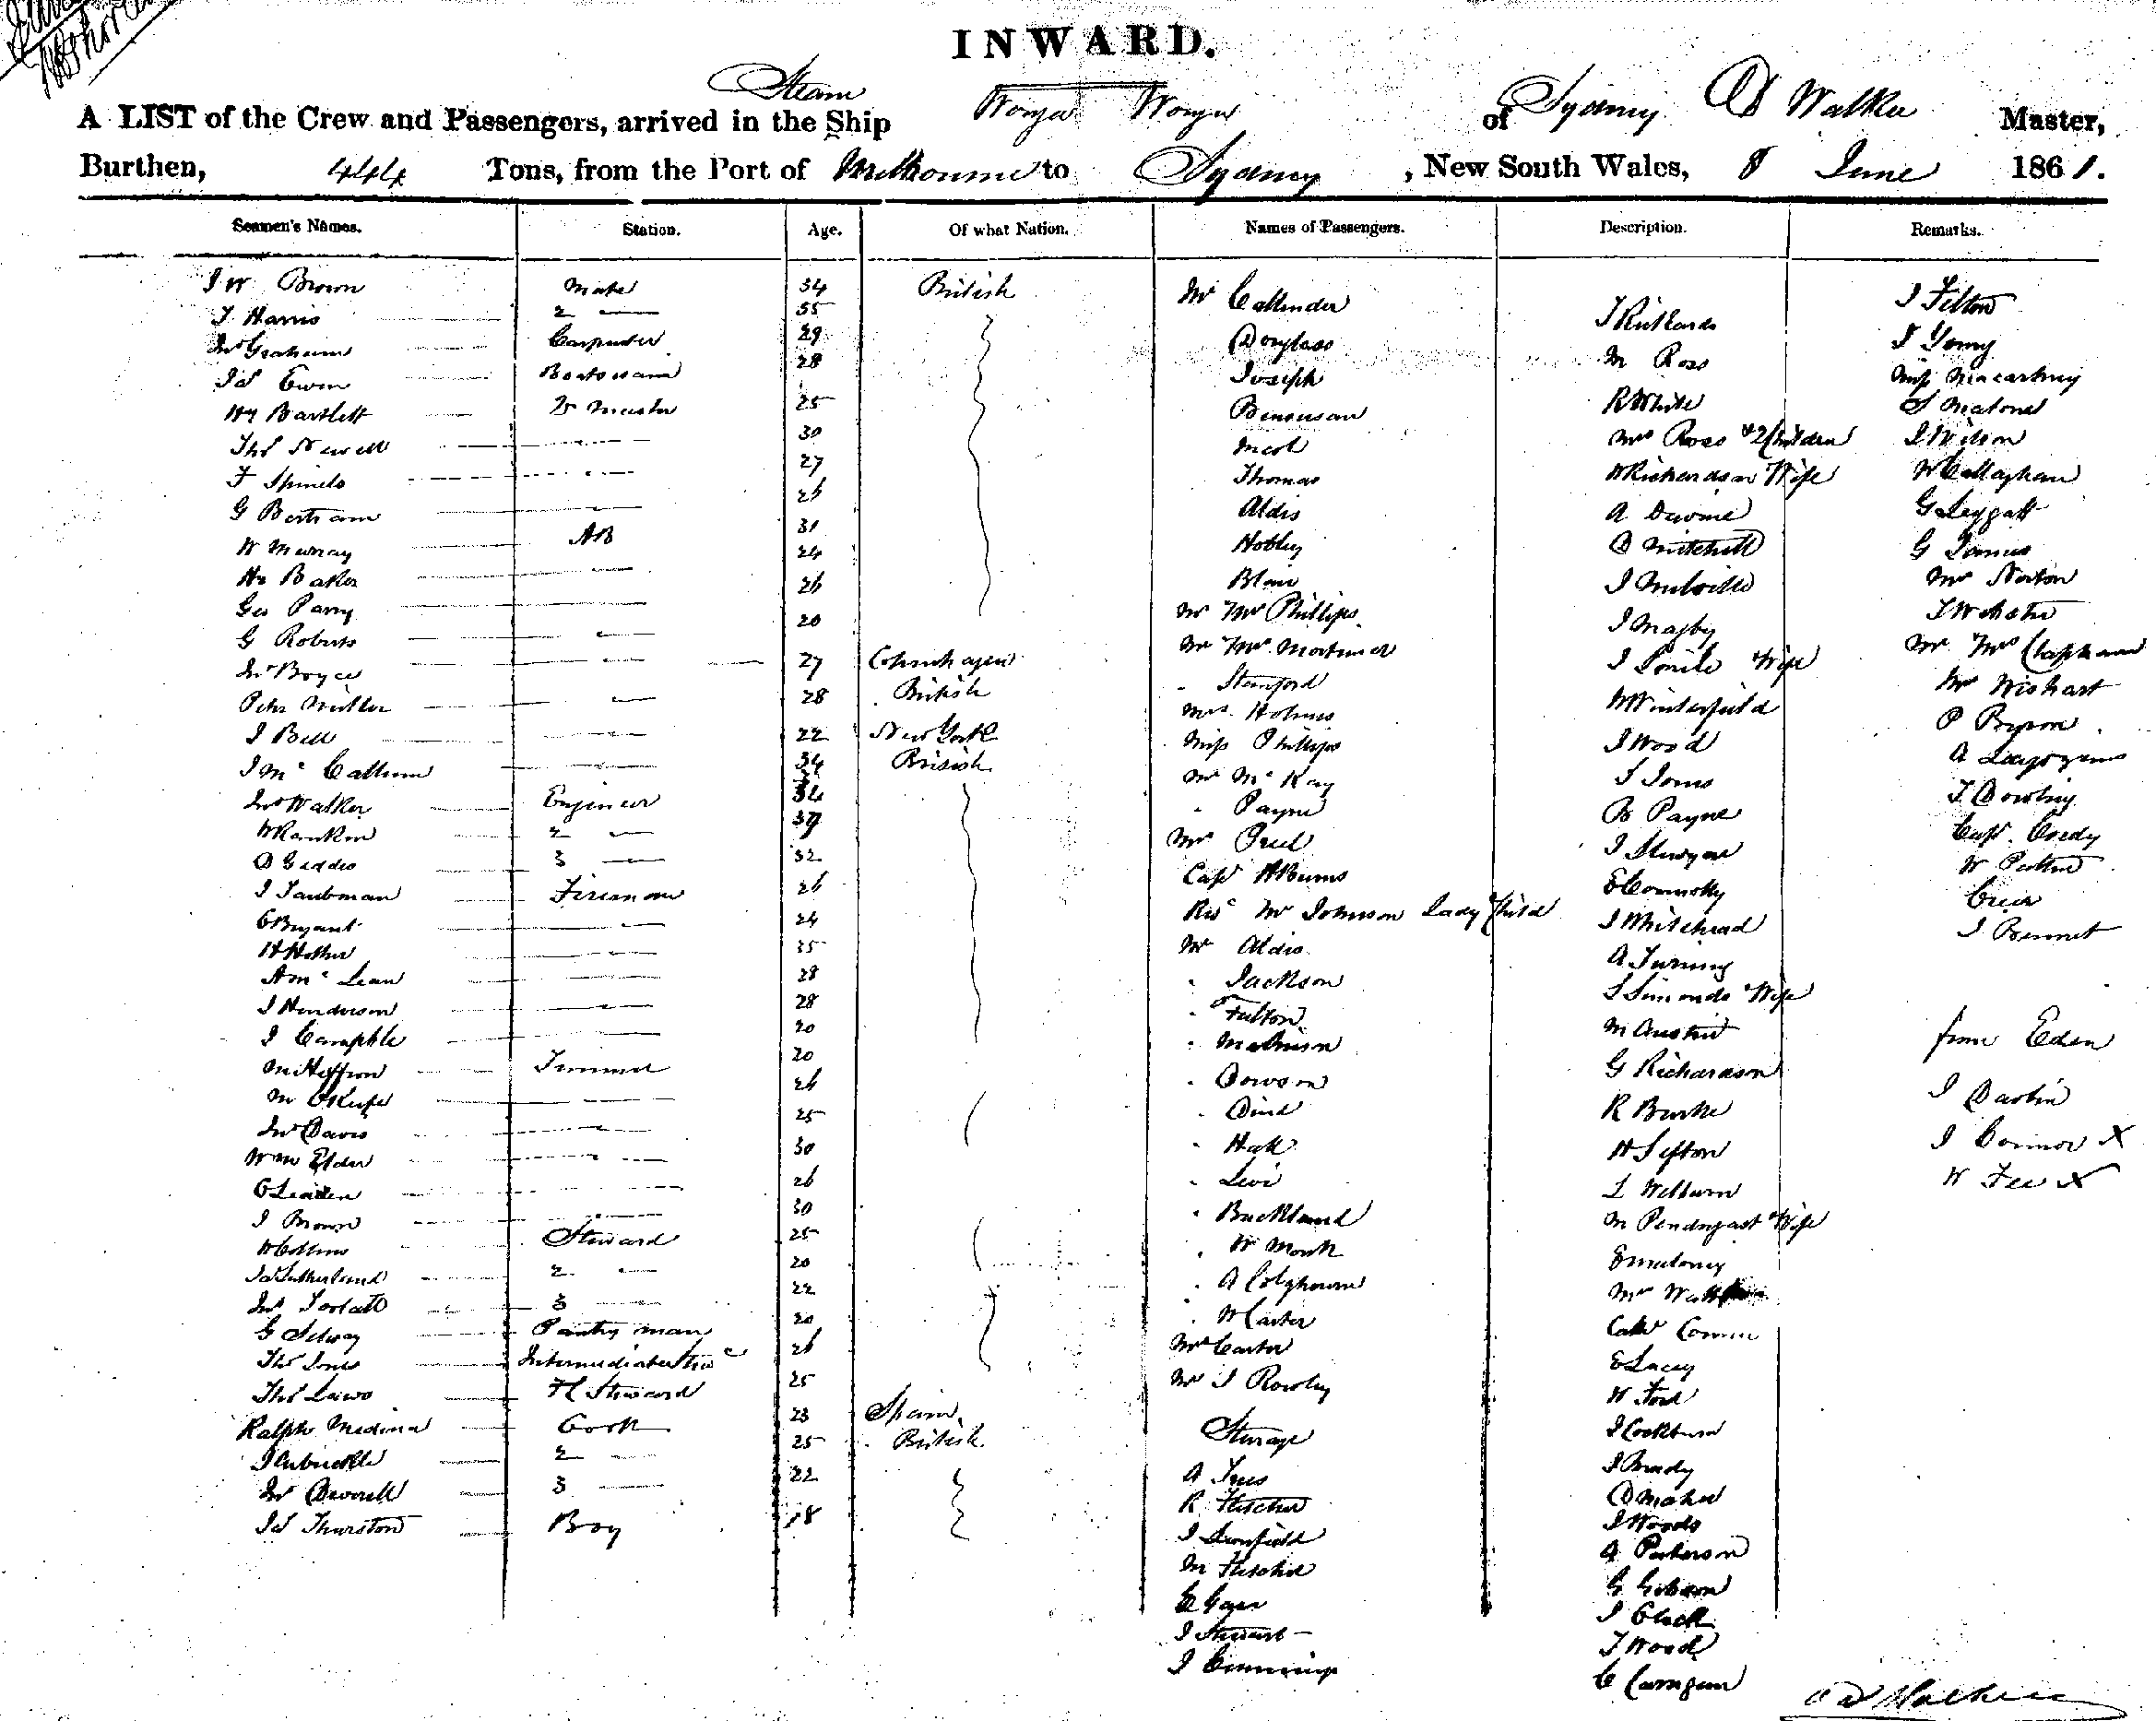 INWARD.
Steam
A LIST of the Crew and Passengers, arrived in the Ship Wonga Wonga of Sydney Walker Master,
Burthen, 444 Tons, from the Port of Melbourne to Sydney, New South Wales, 8 June 1861.
Seamen's Names. Station. Age. Of what Nation. Names of Passengers. Description. Remarks.
J W Brown Mate 34 British
T Harris 2 — 55
Jno Graham Carpenter 29
Jas Ewen Boatswain 28
Hy Bartlett Qr Master 25
Thos Newell 30
F Spinels 27
G Bertram 26
W Murray AB 31
Hy Baker 24
Geo Parry 26
G Roberts 20
Jno Boyce 27 Copenhagen
Peter Miller 28 British
J Bell 22 New York
J Mc Callum 34 British
Jno Walker Engineer 34
W Rankin 2 — 39
D Geddes 3 — 32
J Taubman Fireman 26
C Bryant 24
H Hother 35
A Mc Lean 28
J Henderson 28
J Campble 20
M Heffron Trimmer 20
M O'Keefe 26
Jno Davis 25
Wm Elder 30
26
J Brown 30
W Collins Steward 25
Jas Sutherland 2 — 20
Jno 3 — 22
G Selway Pantry man 20
Thos Jones Intermediate 26
Thos Laws Steward 25
Ralph Medina Cook 23 Spain
J Arbuckle 2 — 25 British
Jno Deverell 3 — 22
Jas Thurston Boy 18
Mr Callender
Douglass
Joseph
Bensusan
Nicol
Thomas
Aldis
Hobley
Blair
Mr Mrs Phillips
Mr Mrs Mortimer
Stanford
Mrs Holmes
Miss Phillips
Mr Mc Kay
Payne
Mr Peel
Capt H Burns
Revd Mr Johnson Lady & Child
Mr Aldis
Jackson
Fulton
Dowson
Dind
Hall
Levi
Buckland
W Monk
A Colghoun
W Carter
Mrs Carter
Mr J Rowley
Sturage
A Ives
R Fletcher
M Fletcher
J Stewart
J Cummings
T Richards
M Ross
R White
Mrs Ross & 2 Children
W Richardson & Wife
D Mitchell
J Melville
J Soule & Wife
W Winterfield
J Wood
J Jones
B Payne
E Connolly
J Whitehead
A Turning
S Simonds & Wife
M Austin
G Richardson
R Burke
H Sefton
L Welburn
M Pendergast & Wife
E Muloney
Cathe
E Lacey
W Ford
J Cockburn
J Brady
D Maher
J Woods
A Paterson
G Gibson
J Black
T Wood
J Felton
J Young
Miss Macartney
S Malone
J Wilson
W Callaghan
G Leggatt
G James
Mr Norton
J Webster
Mr Mrs Clapham
Mr Wishart
P Byron
T Dowling
Capt Creedy
J Bennet
from Eden
J Connor X
W Fee X
Walker